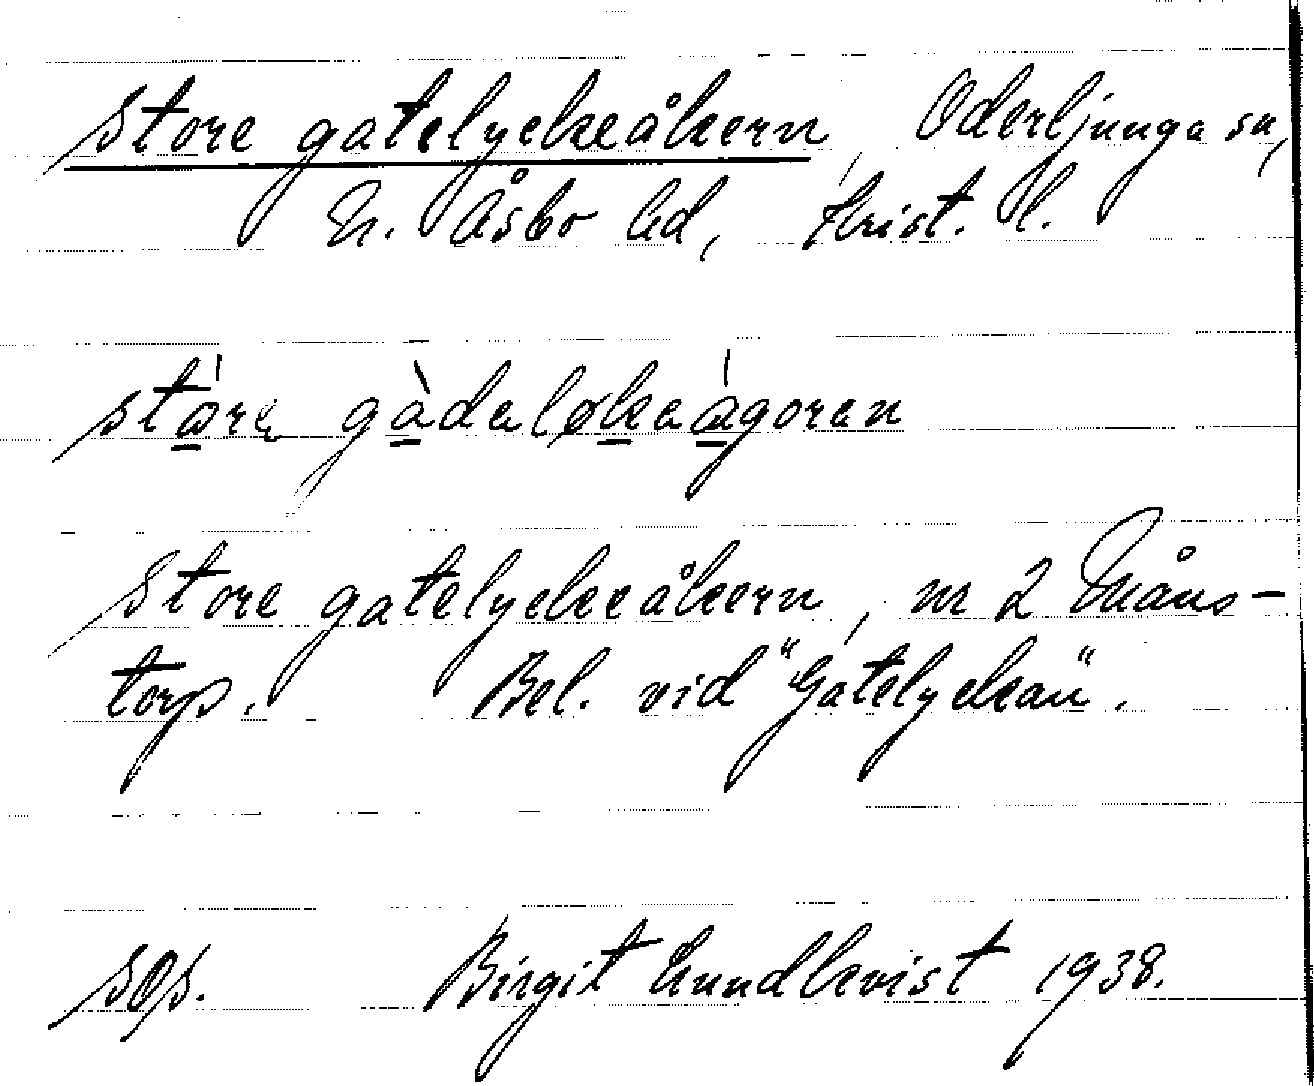 Store gatelyckeåkern, Oderljunga sn,
N. Åsbo hd, Krist. l.
ståre gàdeløkeågoren
Store gatelyckeåkern, nr 2 Måns-
torp. Bel. vid "Gatelyckan".
sOs. Birgit Lundkvist 1938.